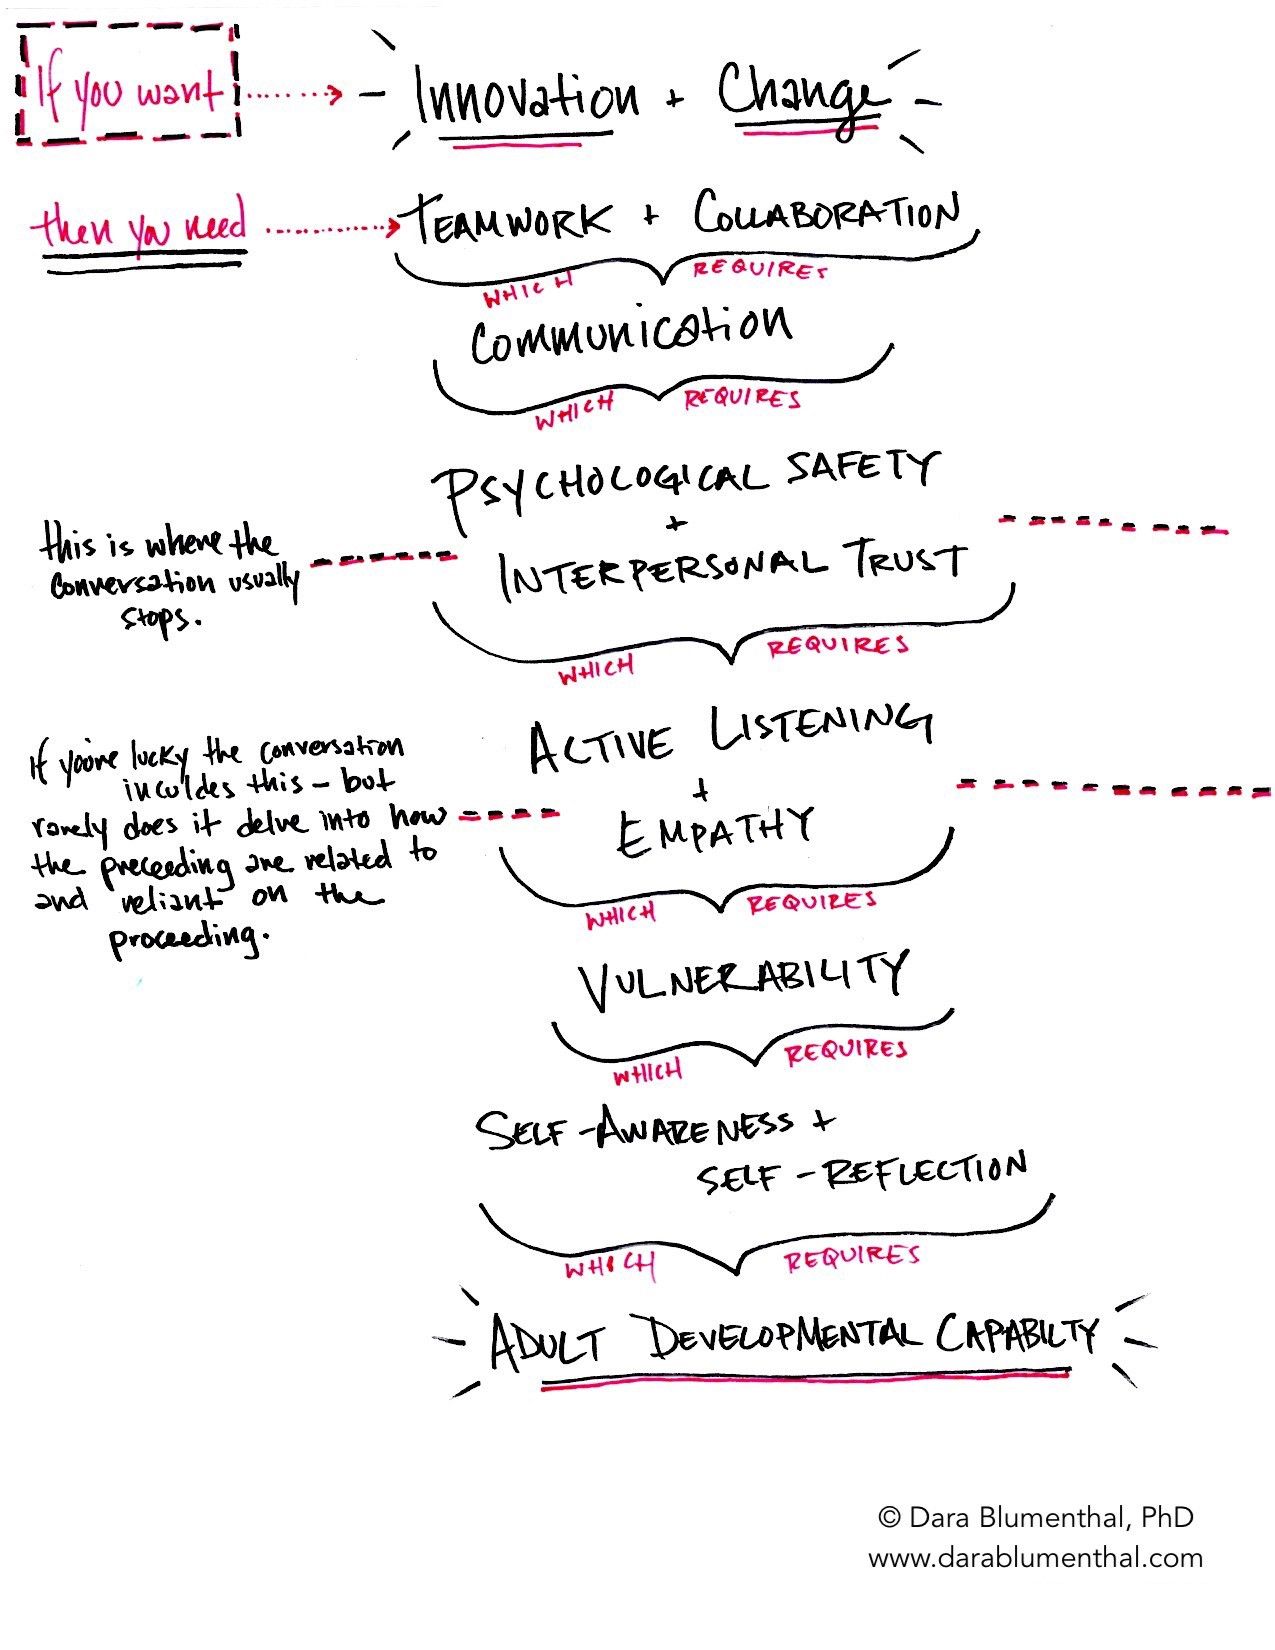 If you want
Innovation + Change
then you need
TEAMWORK + COLLABORATION
WHICH REQUIRES
Communication
WHICH REQUIRES
PSYCHOLOGICAL SAFETY
+
INTERPERSONAL TRUST
this is where the
conversation usually
stops.
WHICH REQUIRES
ACTIVE LISTENING
+
EMPATHY
If you're lucky the conversation
inculdes this - but
rarely does it delve into how
the preceeding are related to
and reliant on the
proceeding.
WHICH REQUIRES
VULNERABILITY
WHICH REQUIRES
SELF-AWARENESS +
SELF-REFLECTION
WHICH REQUIRES
ADULT DEVELOPMENTAL CAPABILTY
© Dara Blumenthal, PhD
www.darablumenthal.com